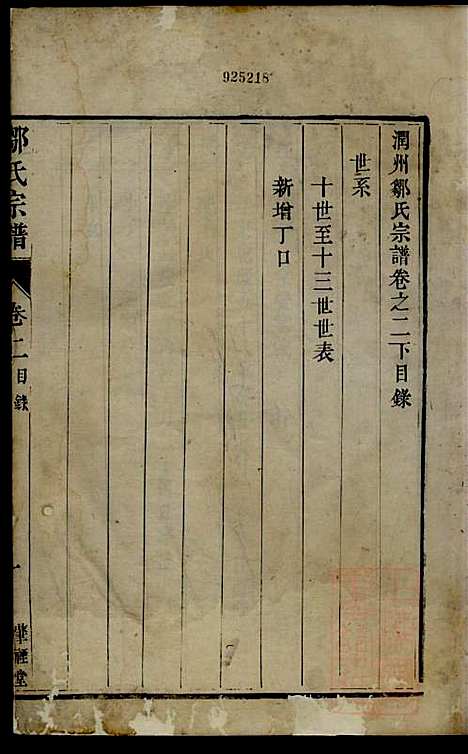 925218
潤州鄒氏宗譜卷之二下目錄
世系
十世至十三世世表
新增丁口
鄒氏宗譜
卷二
目錄
一
堂